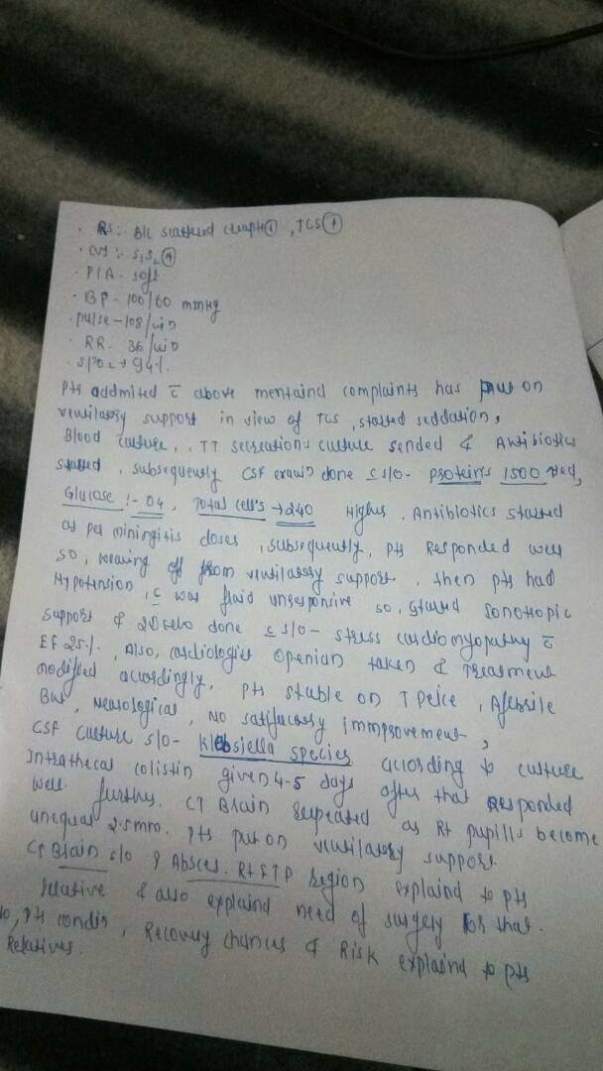 RS:- B/L scattered creapts⊕, TCS⊕
CVS:- S1S2⊕
P/A- soft
BP- 100/60 mmHg
pulse-108/min
RR- 36/min
SPO2→94%.
Pts addmited c̄ above mentaind complaints has on
ventilatry support in view of TCS, started seddation,
Blood culture, TT secreations culture sended & Antibiotics
started, subsequently CSF exam done s/o- proteins 1500
Glucose:- 04, Total cell's→240 Higher. Antibiotics started
as per miningitis doses, subsequently, pts Responded well
so, weaning off from ventilatry support. then pts had
Hypotension, c̄ was fluid unresponsive so, started Ionotropic
support & 2D echo done s/o- stress cardiomyopathy c̄
EF 25%., Also, cardiologist openian taken & Treatment
modified accordingly. pts stable on T peice, Afebrile
But, Neurological, No satisfactory immprovement,
CSF culture s/o- Klebsiella species according to culture
Intrathecal colistin given 4-5 days after that Responded
well further. CT Brain repeated as Rt pupills become
unequal 2.5mm. pts put on ventilatry support.
CT Brain s/o ? Absces. Rt FTP region explaind to pts
relative & also explaind need of surgery for that.
so, pts condn, Recovery chances & Risk explaind to pts
Relatives.